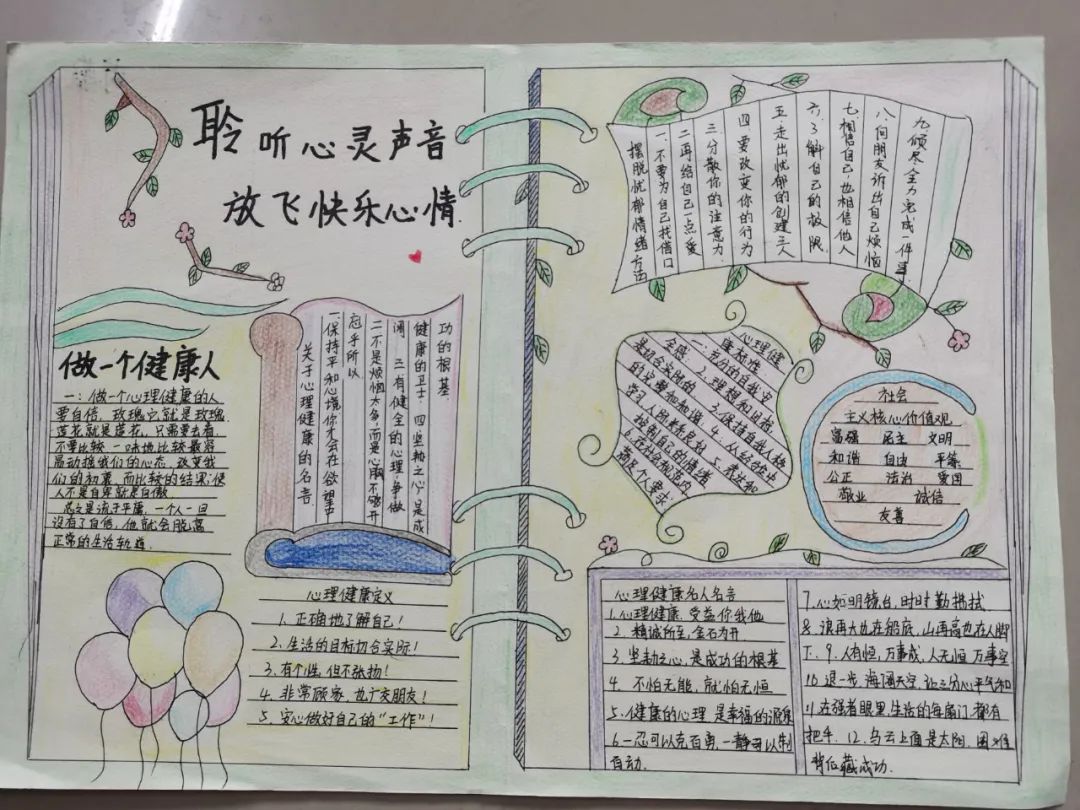 聆听心灵声音
放飞快乐心情
做一个健康人
一：做一个心理健康的人
要自信，玫瑰它就是玫瑰
莲花就是莲花，只需要去看
不要比较，一味地比较最容
易动摇我们的心态，改变我
们的初衷，而比较的结果，使
人不是自卑就是自傲，
总之是流于平庸，一个人一旦
没有了自信，他就会脱离
正常的生活轨道。
关于心理健康的名言
一保持平和心境你才会在欲望中
忘乎所以
二不是烦恼太多，而是心胸不够开
阔 三有健全的心理，争做
健康的卫士 四坚韧之心是成
功的根基
心理健康定义
1. 正确地了解自己！
2. 生活的目标切合实际！
3. 有个性，但不张扬！
4. 非常顾家，也广交朋友！
5. 安心做好自己的“工作”！
摆脱忧郁情绪方法
一不要为自己找借口
二再给自己一点爱
三分散你的注意力
四要改变你的行为
五走出忧郁的创建三人
六了解自己的极限
七相信自己，也相信他人
八向朋友诉出自己烦恼
九倾尽全力完成一件事
心理健
康标准
全感 1、充份的自我安
2、理想和目标
是切合实际的 3、保持自我人格
的完整和和谐 4、从经验中
学习人际关系良好 5、表达和
控制自己的情绪
6、在社会规范内
满足个人要求
社会
主义核心价值观
富强 民主 文明
和谐 自由 平等
公正 法治 爱国
敬业 诚信
友善
心理健康名人名言
1. 心理健康，受益你我他
2. 精诚所至，金石为开
3. 坚韧之心，是成功的根基
4. 不怕无能，就怕无恒
5. 健康的心理，是幸福的源泉
6. 一忍可以充百勇，一静可以制
百动.
7. 心如明镜台，时时勤拂拭
8. 浪再大也在船底，山再高也在人脚
下. 9. 人有恒，万事成，人无恒万事空
10. 退一步，海阔天空，让三分心平气和
11. 在强者眼里，生活的每扇门，都有
把手. 12. 乌云上面是太阳，困难
背后藏成功.